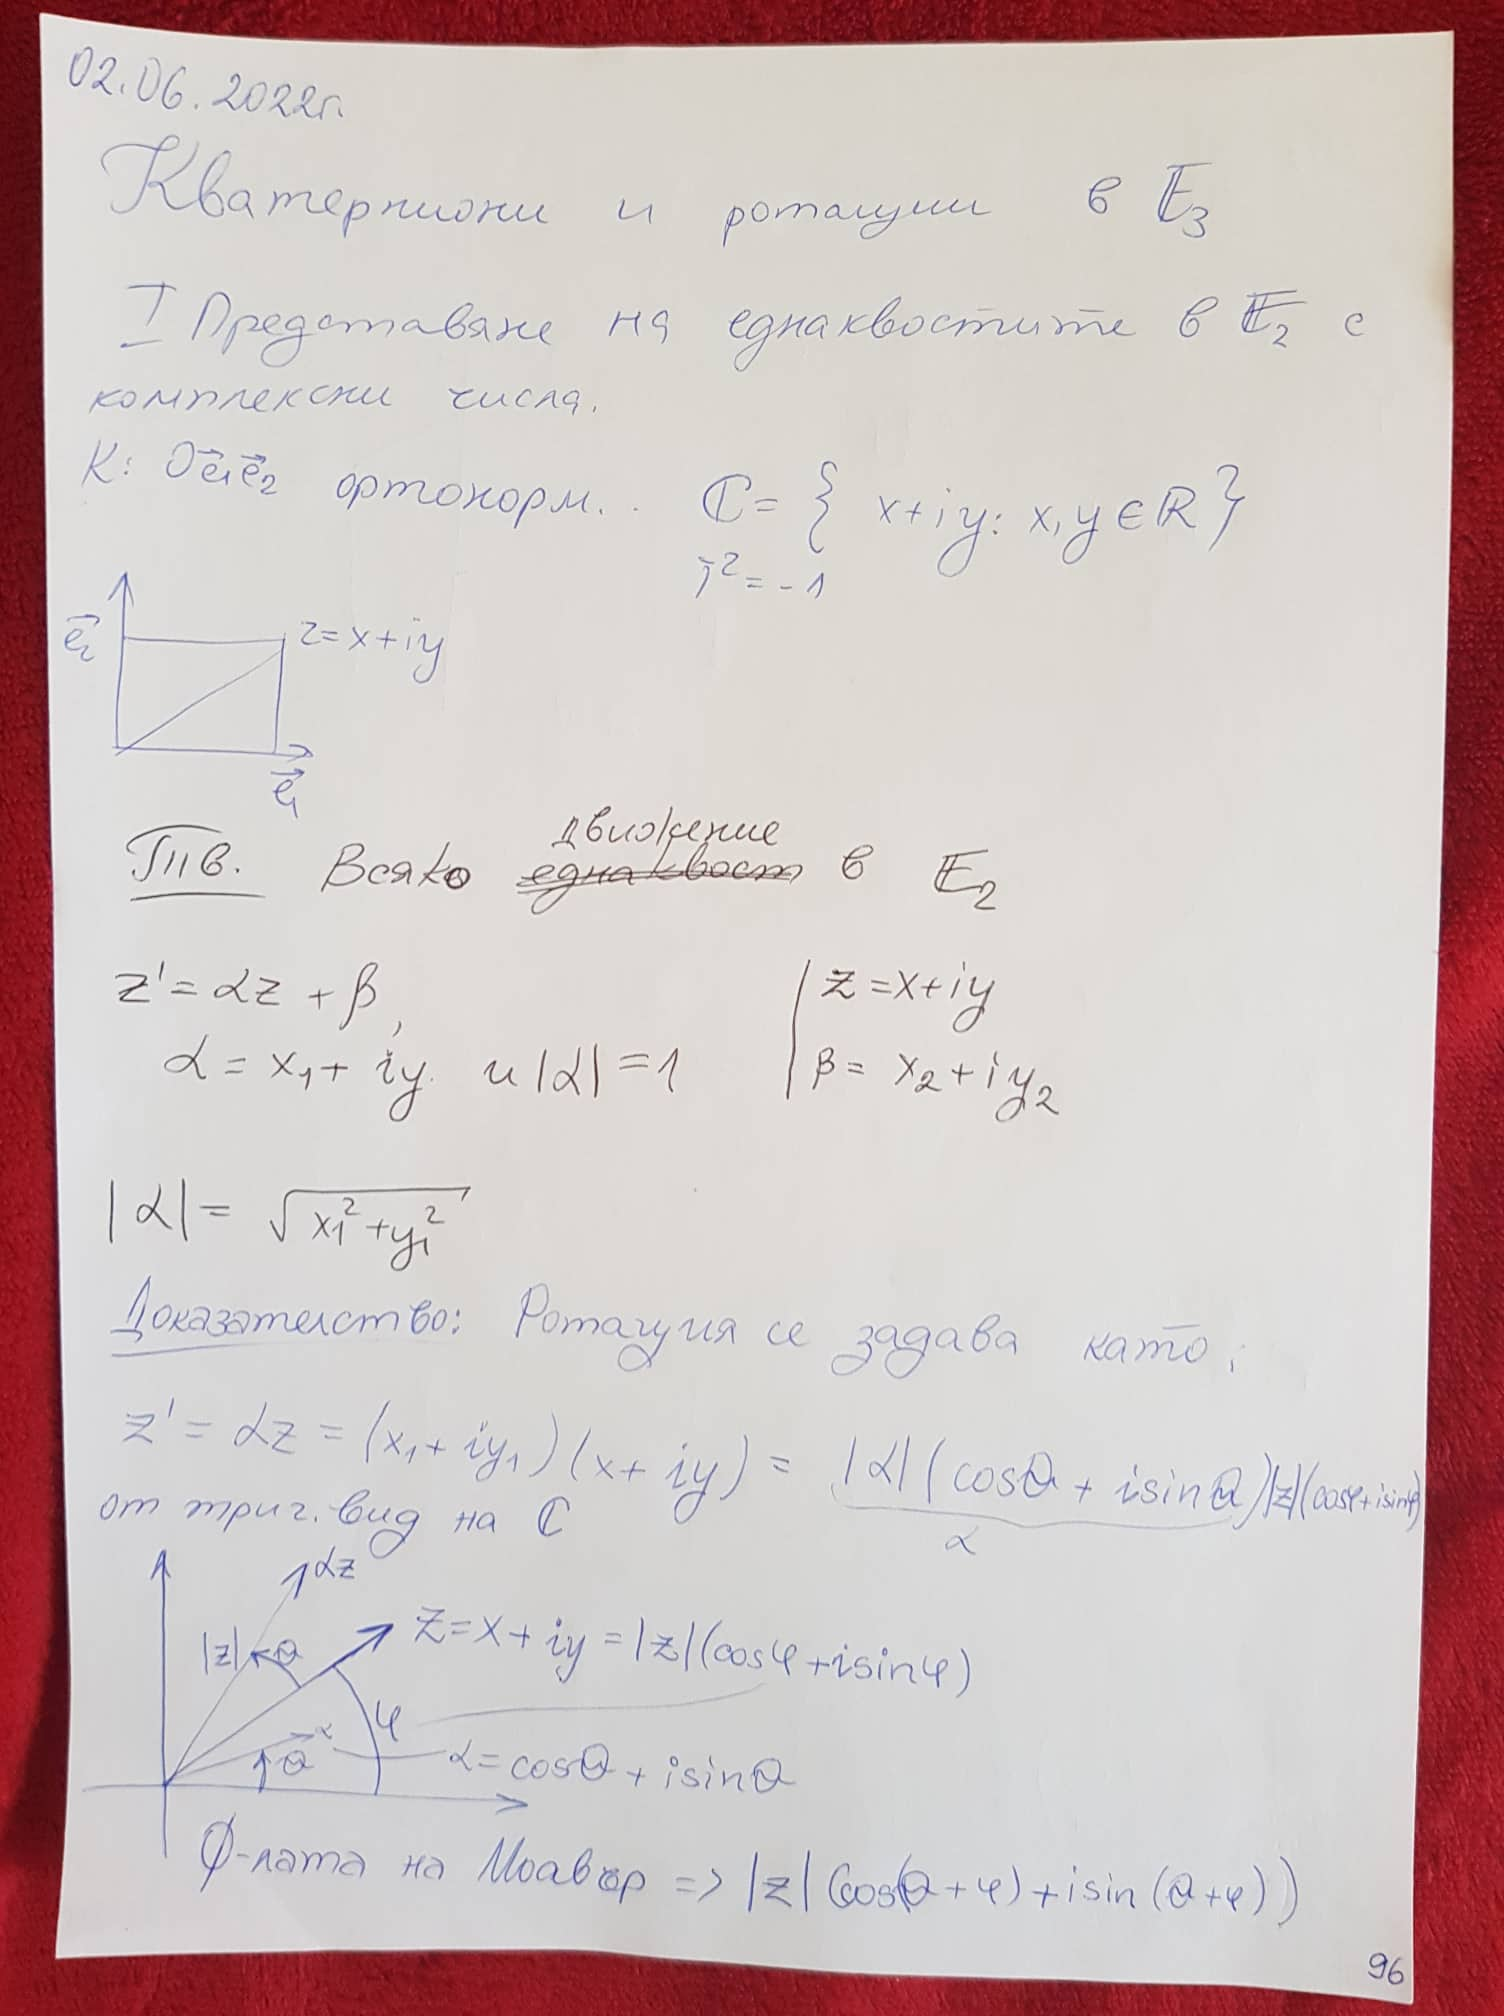 02.06.2022г.
Кватерниони и ротации в E₃
I Представяне на еднаквостите в E₂ с
комплексни числа.
K: Oe⃗₁e⃗₂ ортонорм.. ℂ = { x+iy: x,y ∈ ℝ }
i² = -1
e⃗₂
z = x+iy
e⃗₁
движение
Тв. Всяко ~~еднаквост~~ в E₂
z' = αz + β, | z = x+iy
α = x₁ + iy. и |α| = 1 | β = x₂ + iy₂
|α| = √(x₁² + y₁²)
Доказателство: Ротация се задава като:
z' = αz = (x₁ + iy₁)(x + iy) = |α|(cosθ + isinθ)|z|(cosφ+isinφ)
от триг. вид на ℂ
α
αz
|z|
θ
z = x + iy = |z|(cosφ + isinφ)
φ
α
θ
α = cosθ + isinθ
Ф-лата на Моавър => |z|(cos(θ+φ) + isin(θ+φ))
96